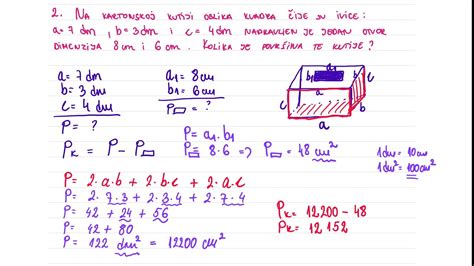 2. NA KARTONSKOJ KUTIJI OBLIKA KVADRA ČIJE SU IVICE:
a = 7 dm, b = 3 dm i c = 4 dm NAPRAVLJEN JE JEDAN OTVOR
DIMENZIJA 8 cm i 6 cm. KOLIKA JE POVRŠINA TE KUTIJE?
a = 7 dm
b = 3 dm
c = 4 dm
P = ?
a₁ = 8 cm
b₁ = 6 cm
P▭ = ?
a₁
b₁
c
c
a
b
a
P_K = P - P▭
P = a₁ · b₁
P▭ = 8 · 6 => P▭ = 48 cm²
1 dm = 10 cm
1 dm² = 100 cm²
P = 2 · a · b + 2 · b · c + 2 · a · c
P = 2 · 7 · 3 + 2 · 3 · 4 + 2 · 7 · 4
P = 42 + 24 + 56
P = 42 + 80
P = 122 dm² = 12200 cm²
P_K = 12 200 - 48
P_K = 12 152